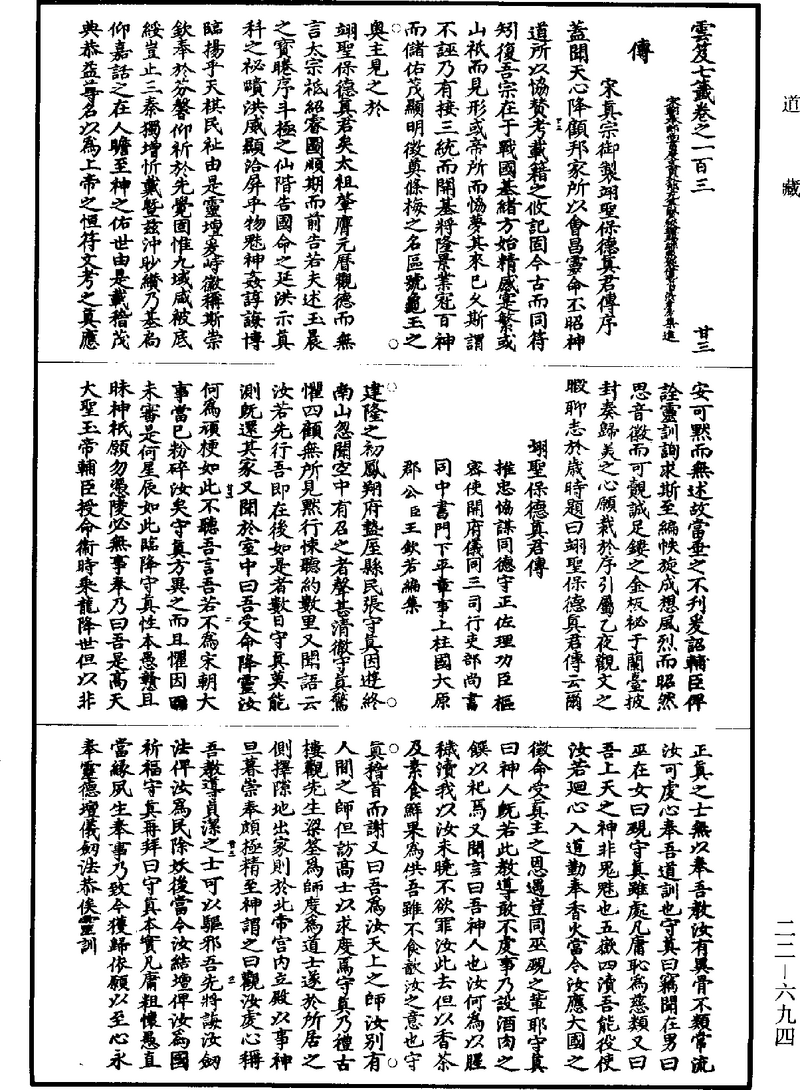 道藏
雲笈七籤卷之一百三　廿三
傳
宋真宗御製翊聖保德真君傳序
蓋聞天心降顧邦家所以會昌靈命丕昭神
道所以協贊考載籍之攸記固今古而同符
矧復吾宗在于戰國基緒方始精感寔繁或
山祇而見形或帝所而協夢其來已久斯謂
不誣乃有接三統而開基將隆景業冠百神
而儲佑茂顯明徵奠條梅之名區號龜玉之
奧主見之於
翊聖保德真君矣太祖肇膺元曆觀德而無
言太宗祗紹睿圖順期而前告若夫述玉晨
之寶睠序斗極之仙階告國命之延洪示真
科之祕賾洪威顯洽屏乎物魅神姦諄誨博
臨揚乎天棋民祉由是靈壇爰峙徽稱斯崇
欽奉於芬馨仰祈於先覺固惟九域咸被底
綏豈止三秦獨增忻戴暨茲沖眇纘乃基局
仰嘉話之在人瞻至神之佑世由是載稽茂
典恭益尊名以為上帝之恒符文考之真應
安可默而無述故當垂之不刊爰詔輔臣俾
詮靈訓詢求斯至編帙旋成想風烈而昭然
思音徽而可覿誠足鏤之金板祕于蘭臺披
封奏歸美之心願裁於序引屬乙夜觀文之
暇聊志於歲時題曰翊聖保德真君傳云爾
翊聖保德真君傳
推忠協謀同德守正佐理功臣樞
密使開府儀同三司行吏部尚書
同中書門下平章事上柱國太原
郡公臣王欽若編集
建隆之初鳳翔府盩厔縣民張守真因遊終
南山忽聞空中有召之者聲甚清徹守真驚
懼四顧無所見默行悚聽約數里又聞語云
汝若先行吾即在後如是者數日守真莫能
測既還其家又聞於室中曰吾受命降靈汝
何為頑梗如此不聽吾言吾若不為宋朝大
事當已粉碎汝矣守真方異之而且懼因曰
未審是何星辰如此臨降守真性本愚戇且
昧神祇願勿憑陵必無事奉乃曰吾是高天
大聖玉帝輔臣授命衛時乘龍降世但以非
正真之士無以奉吾教汝有異骨不類常流
汝可虔心奉吾道訓也守真曰竊聞在男曰
巫在女曰覡守真雖處凡庸恥為慈類又曰
吾上天之神非鬼魅也五嶽四瀆吾能役使
汝若迴心入道勤奉香火當令汝應大國之
徵命受真主之恩遇豈同巫覡之輩耶守真
曰神人既若此教導敢不虔事乃設酒肉之
饌以祀焉又聞言曰吾神人也汝何為以腥
穢瀆我以汝未曉不欲罪汝此去但以香茶
及素食鮮果為供吾雖不食歆汝之意也守
真稽首而謝又曰吾為汝天上之師汝別有
人間之師但訪高士以求度為守真乃禮古
樓觀先生梁筌為師度為道士遂於所居之
側擇隙地出家則於北帝宮內立殿以事神
旦暮崇奉頗極精至神謂之曰觀汝虔心稱
吾教導貞潔之士可以驅邪吾先將誨汝劍
法俾汝為民除妖後當令汝結壇俾汝為國
祈福守真再拜曰守真本實凡庸粗懷愚直
當緣夙生奉事乃致今獲歸依願以至心永
奉靈德壇儀劍法恭俟靈訓
二二—六九四